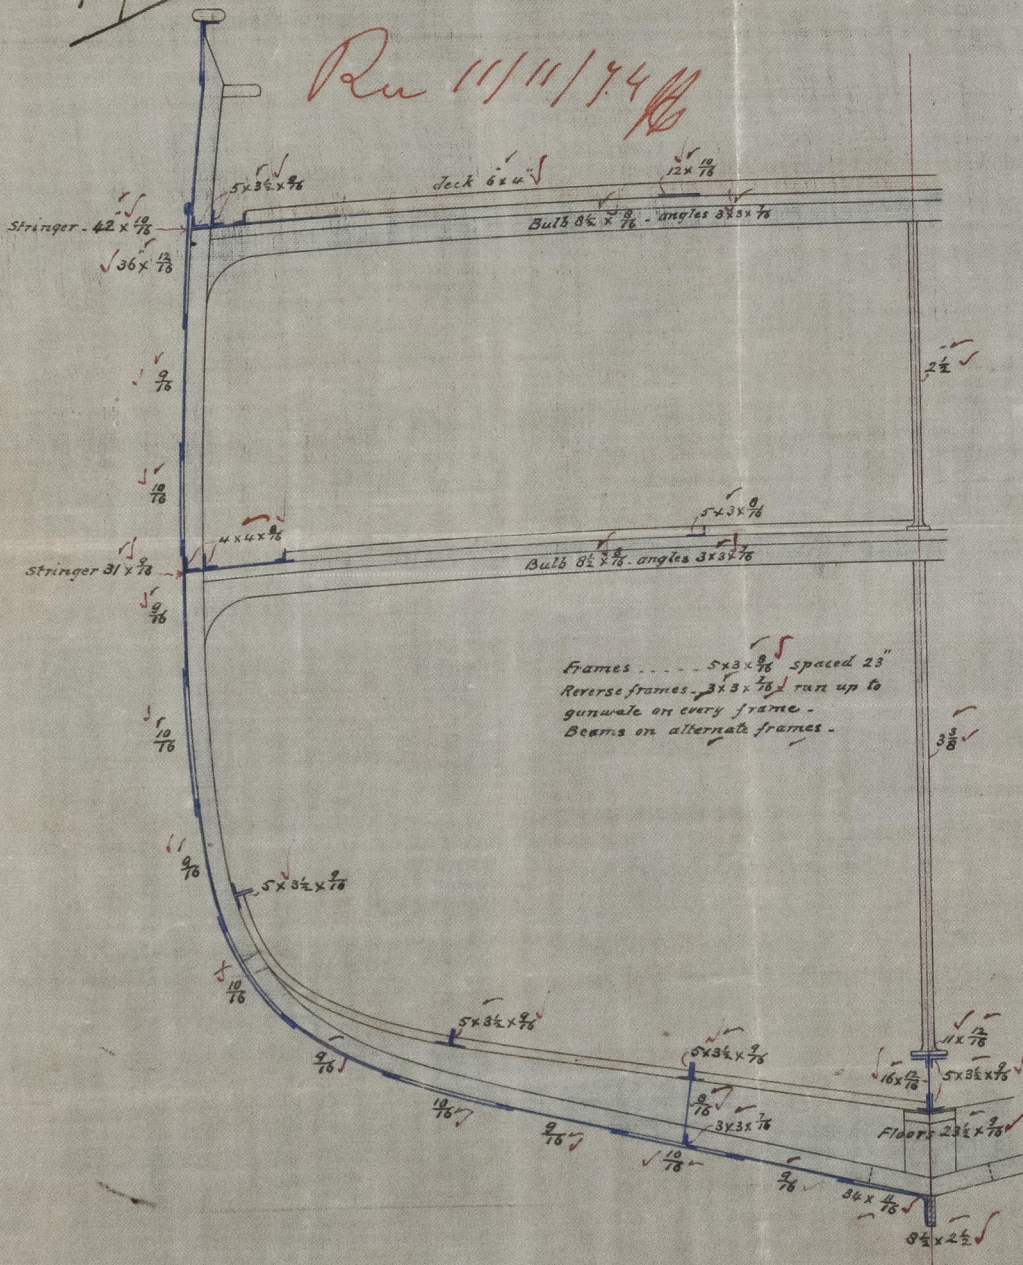 11/11/74
5 x 3½ x 9/16
deck 6" x 4"
12" x 10/16
Stringer - 42" x 10/16
Bulb 8½ x 8/16 - angles 3x3x 7/16
36 x 12/16
9/16
2½"
10/16
5 x 3 x 8/16
4 x 4 x 8/16
Stringer 31 x 9/16
Bulb 8½ x 8/16 - angles 3x3x 7/16
9/16
Frames ..... 5x3x 8/16 spaced 23"
Reverse frames - 3x3x 7/16 run up to
gunwale on every frame -
Beams on alternate frames -
10/16
3⅜
9/16
5 x 3½ x 9/16
10/16
5x3½ x 9/16
11 x 12/16
9/16
5x3½ x 9/16
16 x 12/16
5x3½ x 9/16
10/16
8/16
3x3x 7/16
9/16
Floors 23½ x 9/16
10/16
9/16
34 x 11/16
8½ x 2½